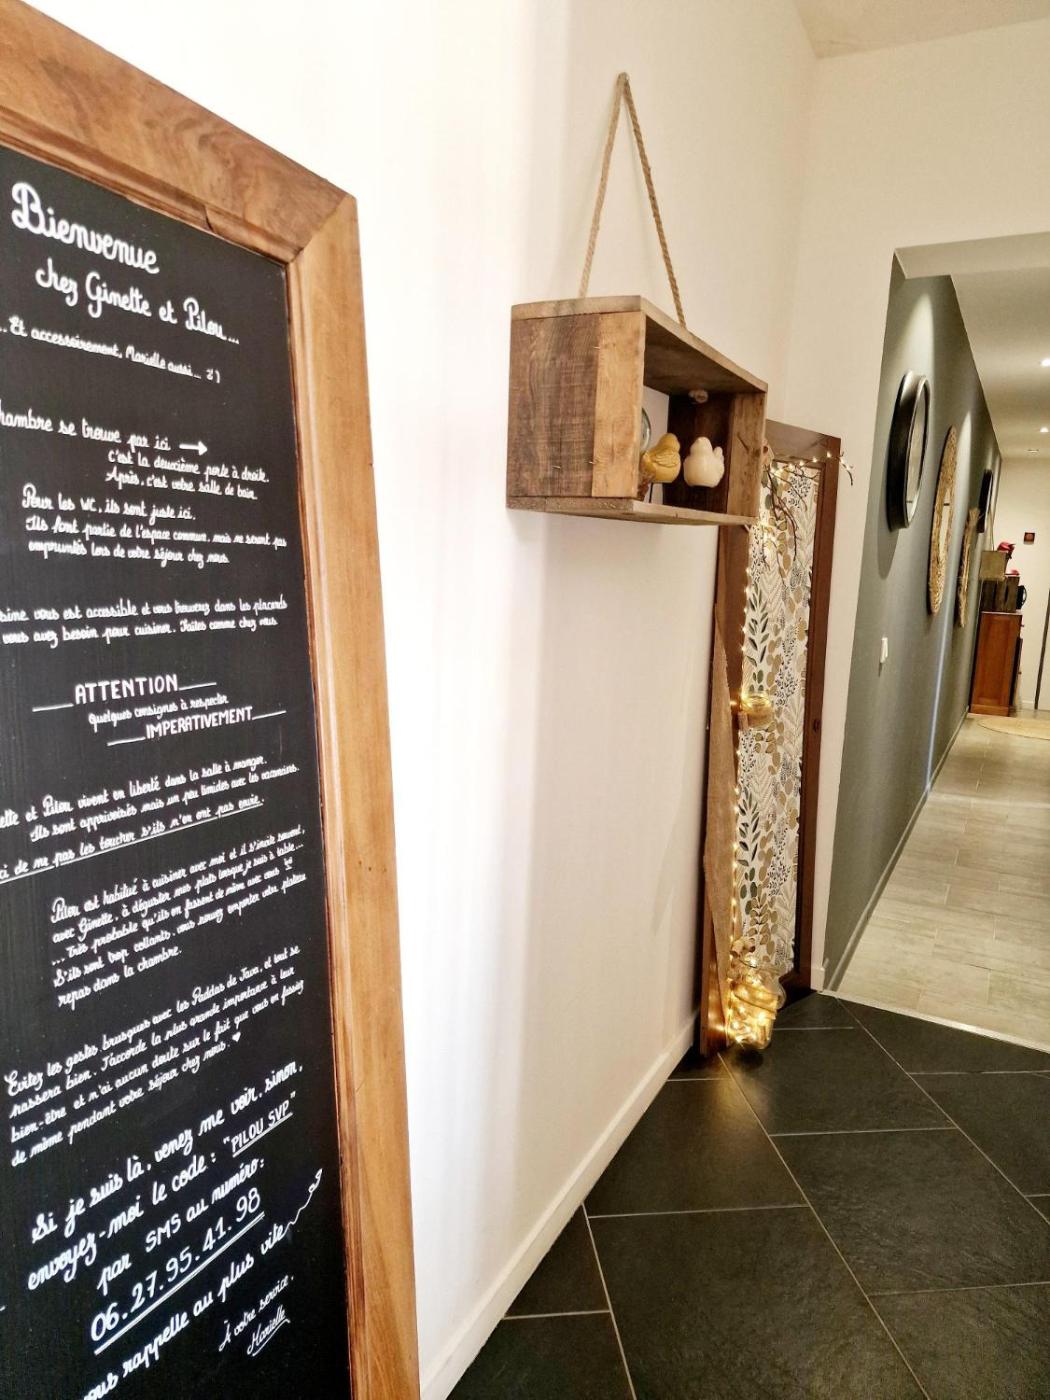 Bienvenue
chez Ginette et Pilou...
...Et accessoirement, Marielle aussi... :)
chambre se trouve par ici →
c'est la deuxième porte à droite.
Après, c'est votre salle de bain.
Pour les WC, ils sont juste ici.
Ils font partie de l'espace commun, mais ne seront pas
empruntés lors de votre séjour chez nous.
vous est accessible et vous trouverez dans les placards
vous avez besoin pour cuisiner. Faites comme chez vous.
ATTENTION
quelques consignes à respecter
IMPERATIVEMENT
et Pilou vivent en liberté dans la salle à manger.
Ils sont apprivoisés mais un peu timides avec les vacanciers.
de ne pas les toucher s'ils n'en ont pas envie.
Pilou est habitué à cuisiner avec moi et il s'invite souvent,
avec Ginette, à déguster mes plats lorsque je suis à table...
... Très probable qu'ils en fassent de même avec vous
S'ils sont trop collants, vous pouvez emporter votre plateau
repas dans la chambre.
Evitez les gestes brusques avec les Paddas de Java, et tout se
passera bien. J'accorde la plus grande importance à leur
bien-être et n'ai aucun doute sur le fait que vous en fassiez
de même pendant votre séjour chez nous ♥
Si je suis là, venez me voir, sinon,
envoyez-moi le code : "PILOU SVP"
par SMS au numéro:
06.27.95.41.98
vous rappelle au plus vite
À votre service,
Marielle